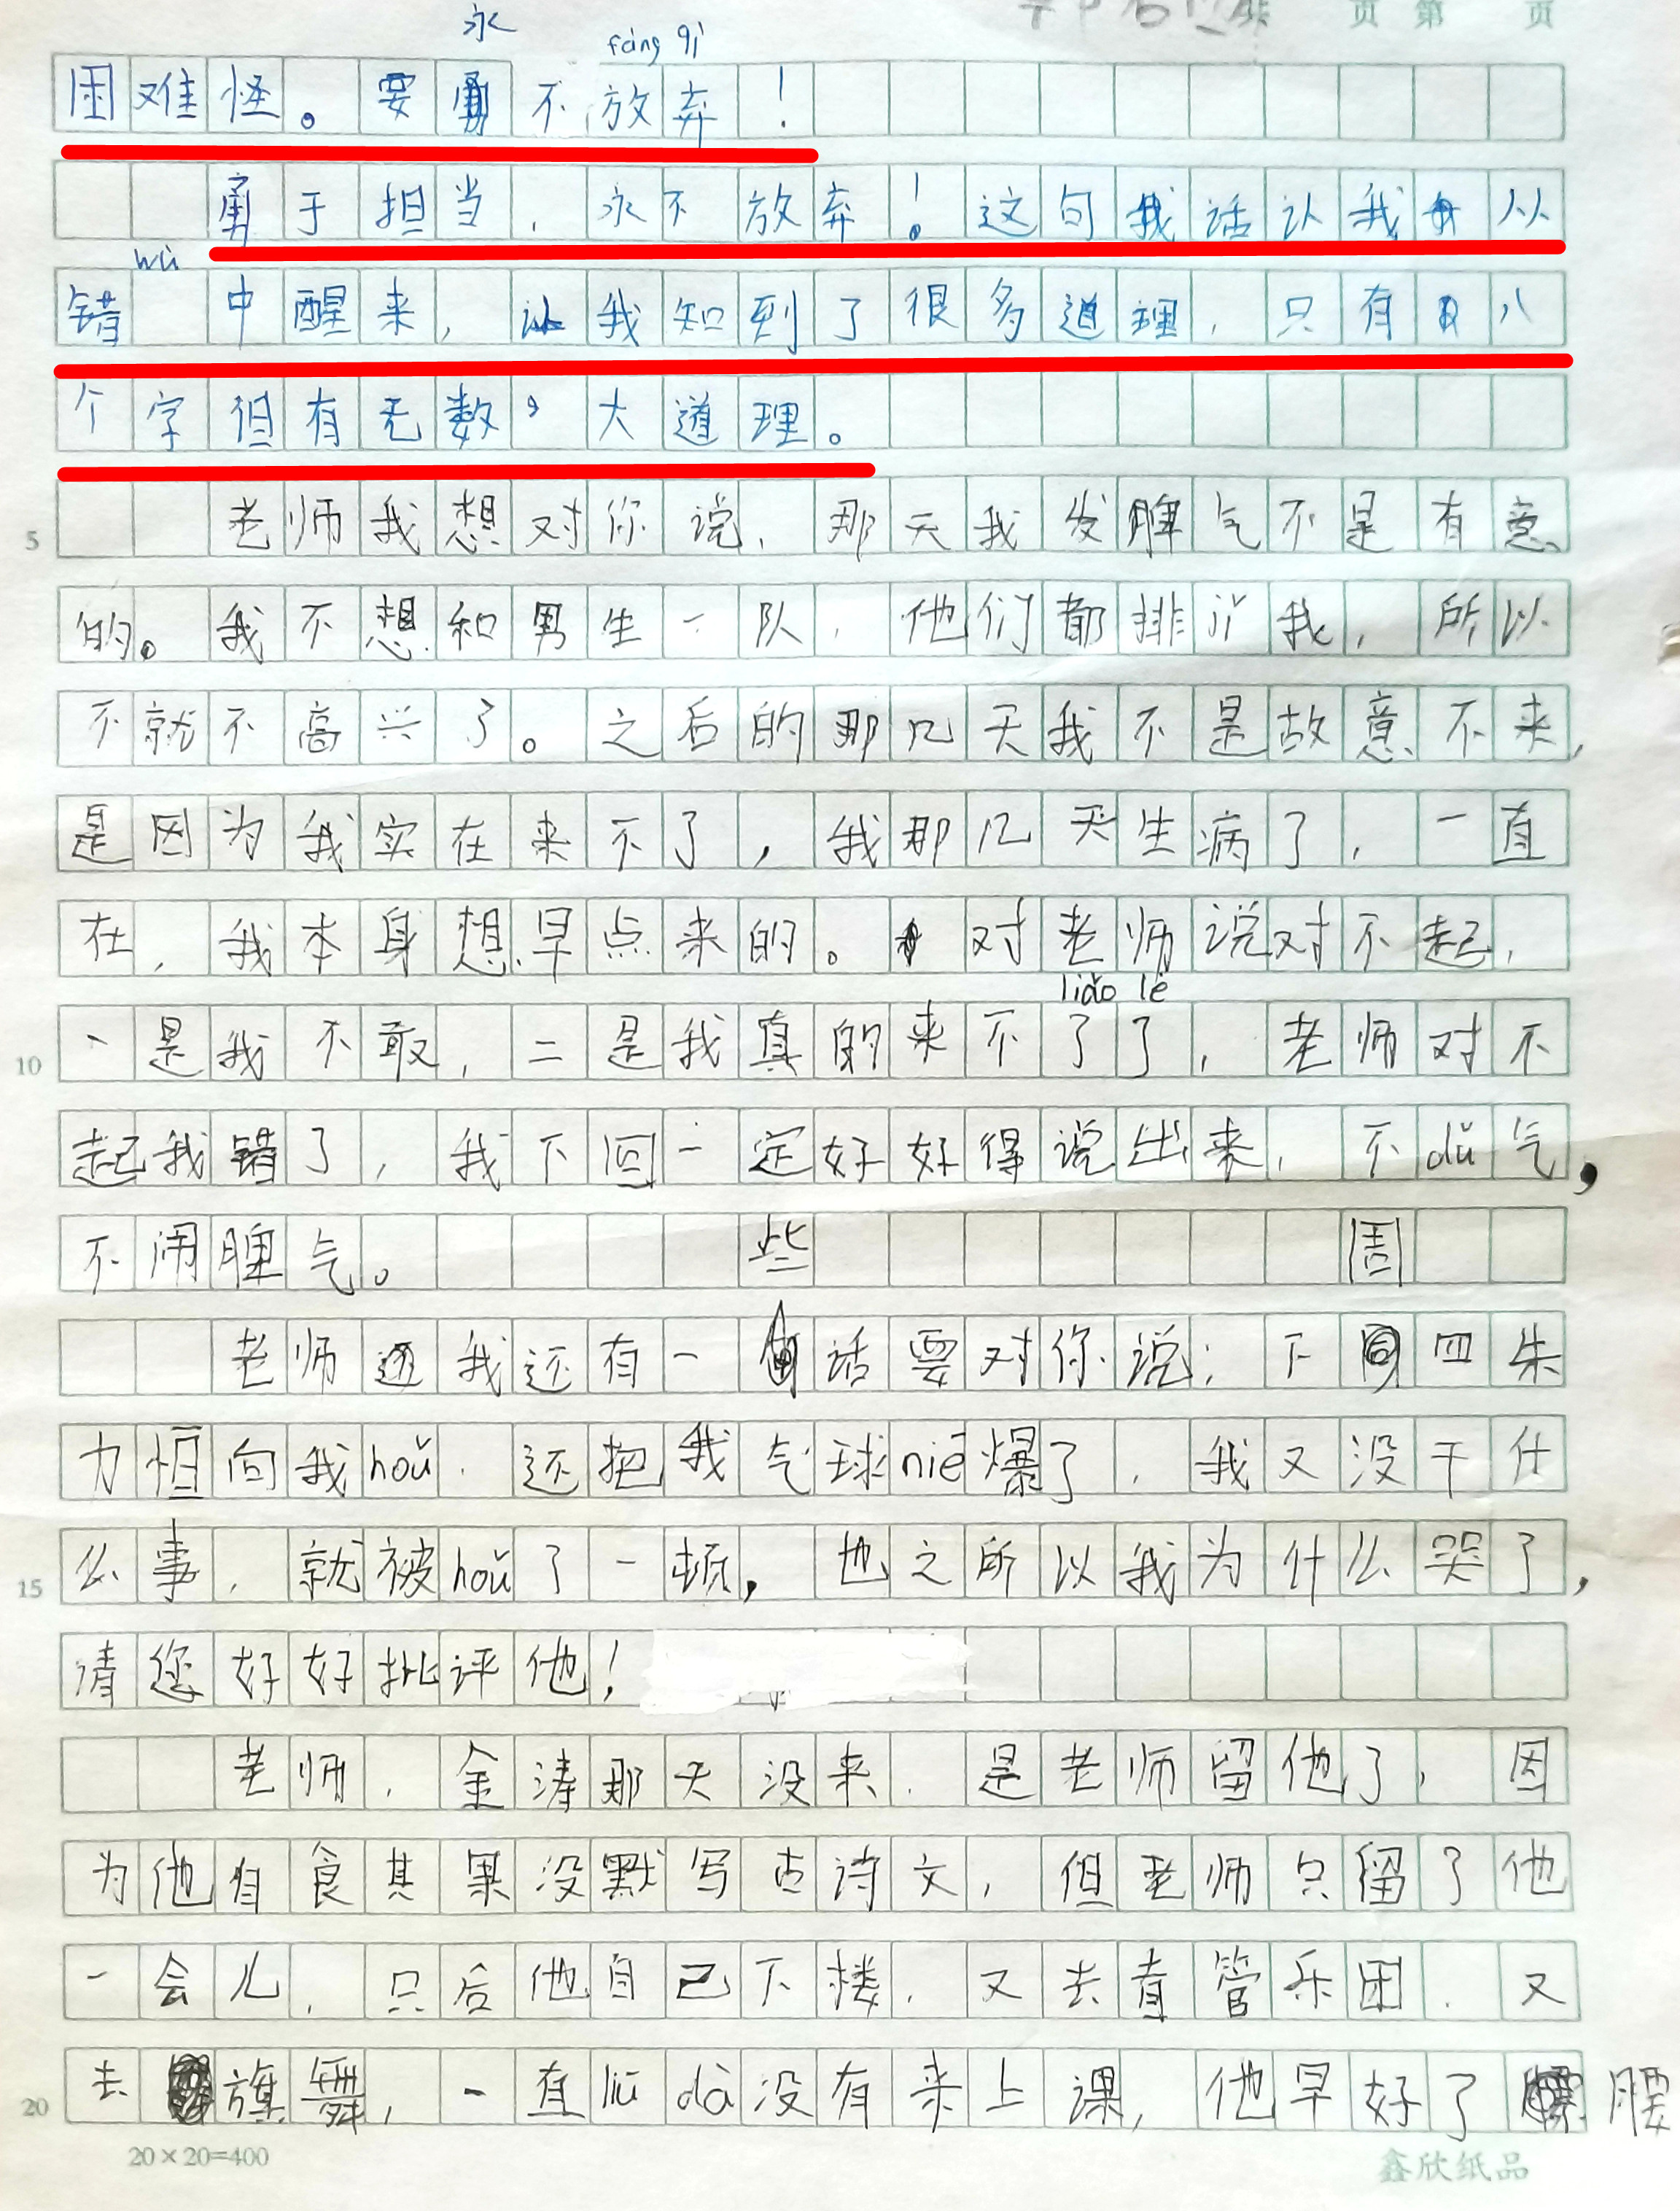 页 第 页
永
fàng qì
困难怪。要不放弃！
勇于担当，永不放弃！这句话认我从
wù
错 中醒来，让我知到了很多道理，只有八
个字但有无数，大道理。
5 老师我想对你说，那天我发脾气不是有意
的。我不想和男生一队，他们都排jǐ我，所以
不就不高兴了。之后的那几天我不是故意不来，
是因为我实在来不了，我那几天生病了，一直
在，我本身想早点来的。对老师说对不起，
liǎo le
10 一是我不敢，二是我真的来不了了，老师对不
起我错了，我下回一定好好得说出来，不dǔ气，
不闹脾气。 些 周
老师还我还有一话要对你说：下四朱
力恒向我hǒu，还把我气球niē爆了，我又没干什
15 么事，就被hǒu了一顿，也之所以我为什么哭了，
请您好好批评他！
老师，金涛那天没来，是老师留他了，因
为他自食其果没默写古诗文，但老师只留了他
一会儿，只后他自己下楼，又去管乐团，又
20 去旗舞，一直liū dá没有来上课，他早好了腰
20×20=400 鑫欣纸品